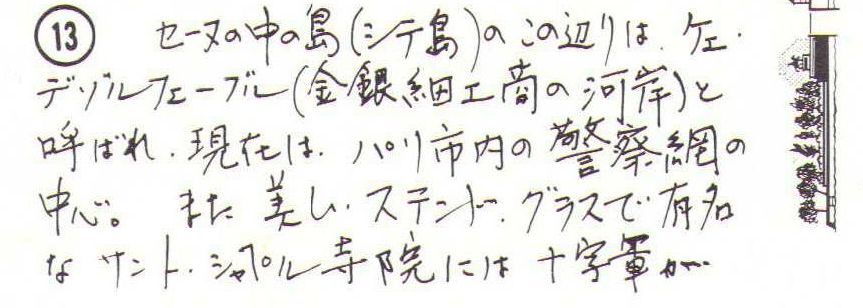 ⑬ セーヌの中の島(シテ島)のこの辺りは、ケ・
デゾルフェーブル(金銀細工商の河岸)と
呼ばれ、現在は、パリ市内の警察網の
中心。また美しい・ステンド・グラスで有名
なサント・シャペル寺院には十字軍が